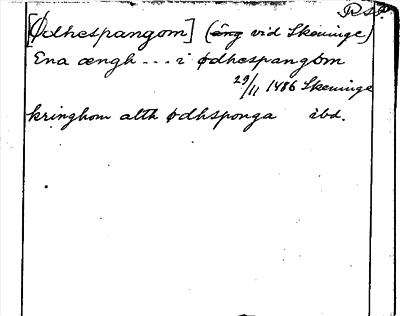 R S P.
[Ødhespangom] (äng vid Skeninge)
Ena ængh --- i ødhespangom
29/11 1486 Skeninge
kringhom alth ødhsponga ibd.